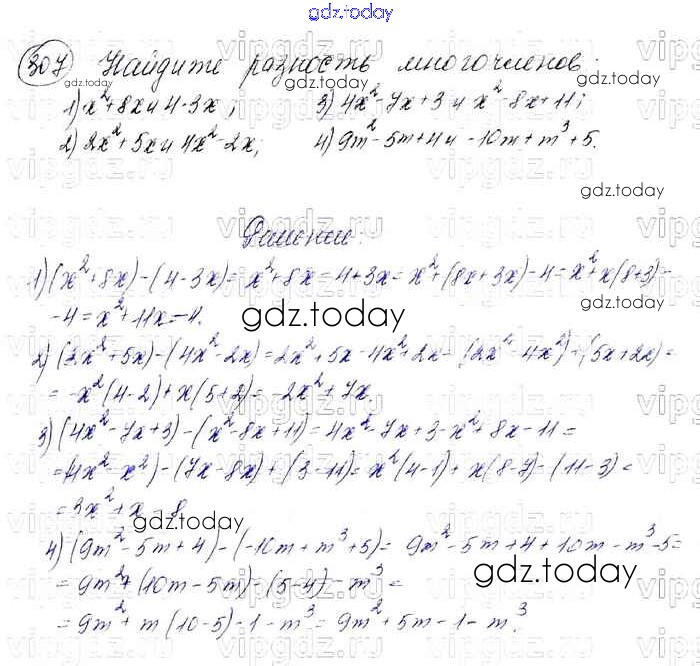 gdz.today
307 Найдите разность многочленов:
1) x²+8x и 4-3x; 3) 4x²-7x+3 и x²-8x+11;
2) 2x²+5x и 4x²-2x; 4) 9m²-5m+4 и -10m+m³+5.
gdz.today
Решение:
1) (x²+8x)-(4-3x)=x²+8x-4+3x=x²+(8x+3x)-4=x²+x(8+3)-
-4=x²+11x-4.
gdz.today
2) (2x²+5x)-(4x²-2x)=2x²+5x-4x²+2x=(2x²-4x²)+(5x+2x)=
=-x²(4-2)+x(5+2)=-2x²+7x.
3) (4x²-7x+3)-(x²-8x+11)=4x²-7x+3-x²+8x-11=
=(4x²-x²)-(7x-8x)+(3-11)=x²(4-1)+x(8-7)-(11-3)=
=3x²+x-8
gdz.today
4) (9m²-5m+4)-(-10m+m³+5)=9m²-5m+4+10m-m³-5=
=9m²+(10m-5m)-(5-4)-m³=
gdz.today
=9m²+m(10-5)-1-m³=9m²+5m-1-m³.